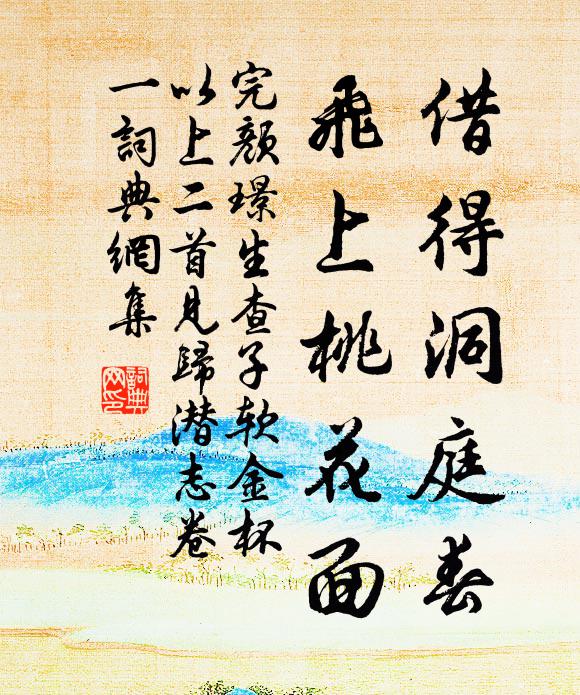 借得洞庭春
飛上桃花面
完顏璟生查子软金杯
以上二首見歸潜志卷
一詞典網集
詞典網印